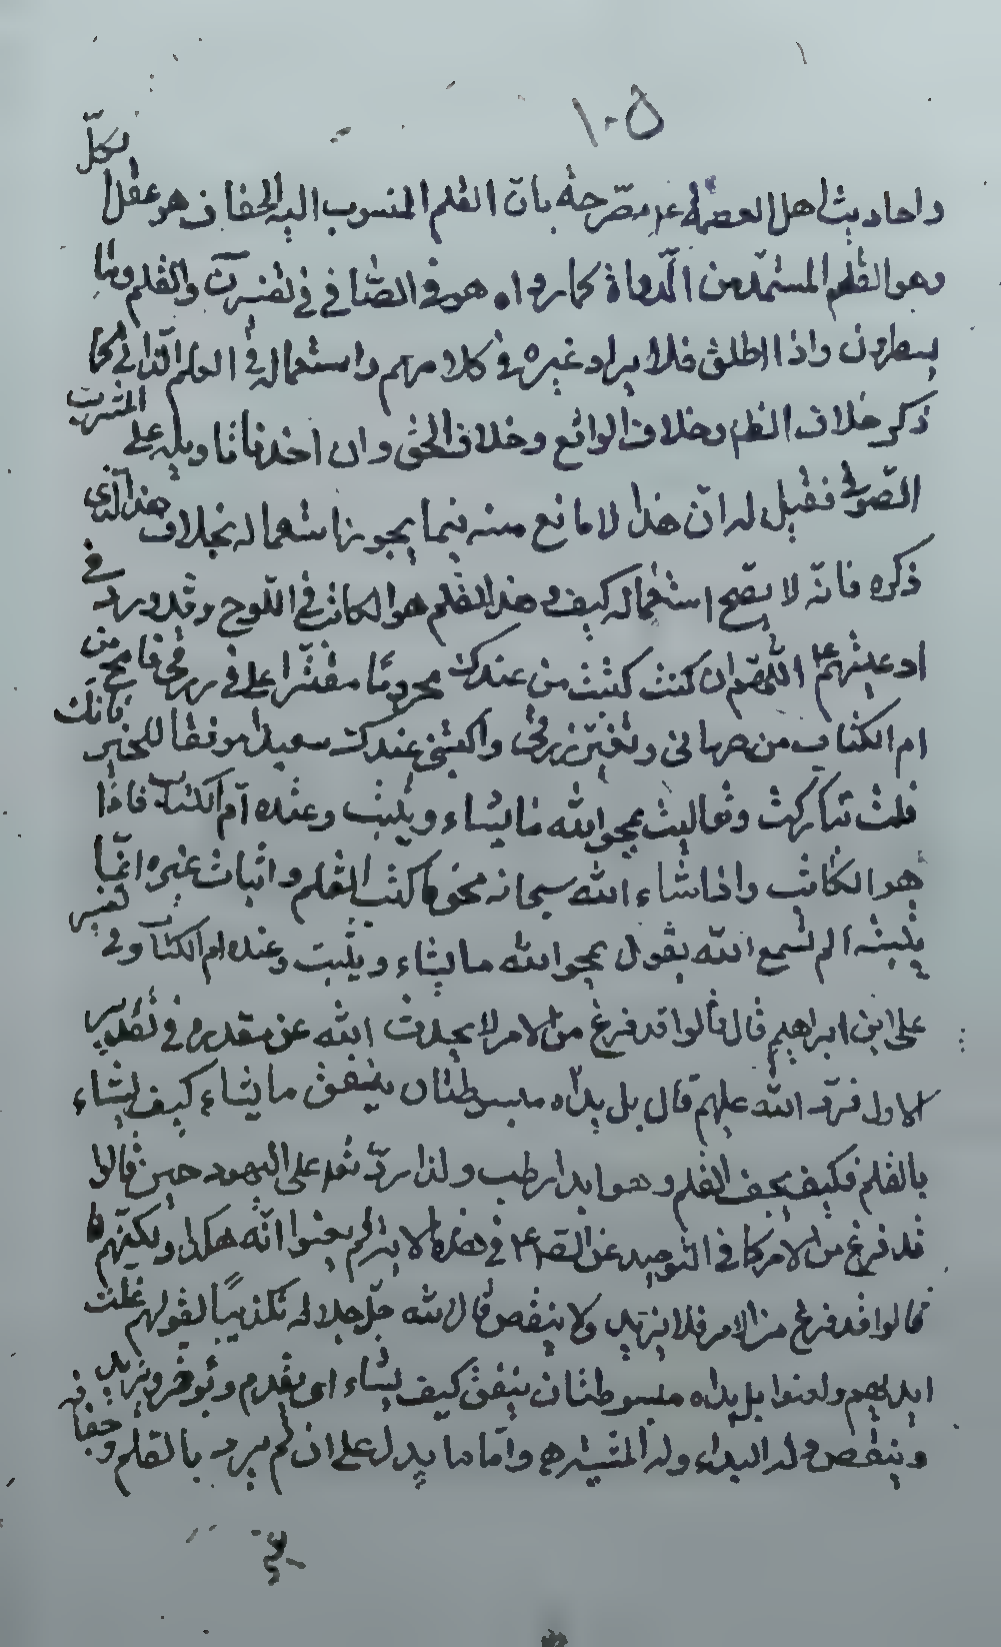 ١٠٥
واحاديث اهل العصمة ع مصرّحة بان القلم المنسوب اليه الجفاف هو عقل الكلّ
وهو القلم المستمد من الدواة كما رواه هو في الصّافي في تفسير ن والقلم وما
يسطرون واذا اطلق فلا يراد غيره في كلامهم واستعماله في العلم الذاتي كما
ذكر خلاف الظم وخلاف الواقع وخلاف الحق وان اخذنا تاويله على المشرب
الصّوفي فقيل له ان هذا لا مانع منه فيما يجوز استعماله بخلاف هذا الذي
ذكره فانّه لا يصّح استعماله كيف وهذا القلم هو الكاتب في اللّوح وقد ورد في
ادعيتهم ع اللّهم ان كنت كتبت من عندك محروما مقترا علي في رزقي فامح من
ام الكتاب من حرماني وتقتير رزقي واكتبني عندك سعيدا موفقا للخير فانك
قلت تباركت وتعاليت يمحو الله ما يشاء ويثبت وعنده ام الكتاب فاذا
هو الكاتب واذا شاء الله سبحانه محو ما كتب القلم واثبات غيره انّما
يثبته الم تسمع الله يقول يمحو الله ما يشاء ويثبت وعنده ام الكتاب وفي تفسير
على ابن ابراهيم قال قالوا قد فرغ من الامر لا يحدث الله عن مقدره في تقدير
الاول فردّ الله عليهم قال بل يداه مبسوطتان ينفق ما يشاء كيف يشاء
بالقلم فكيف يجف القلم وهو ابدا رطب ولذا ردّ تعد على اليهود حين قالوا
قد فرغ من الامر كما في التوحيد عن الصم في هذه الاية لم يعنوا انّه هكذا ولكنّهم قا
قالوا قد فرغ من الامر فلا يزيد ولا ينقص قال الله جلّ جلاله تكذيبًا لقولهم غلت
ايديهم ولعنوا بل يداه مبسوطتان ينفق كيف يشاء اى يقدم ويؤخر ويزيد
وينقص وله البداء وله المشية وامّا ما يدل على ان لم يرد بالقلم وجفافه